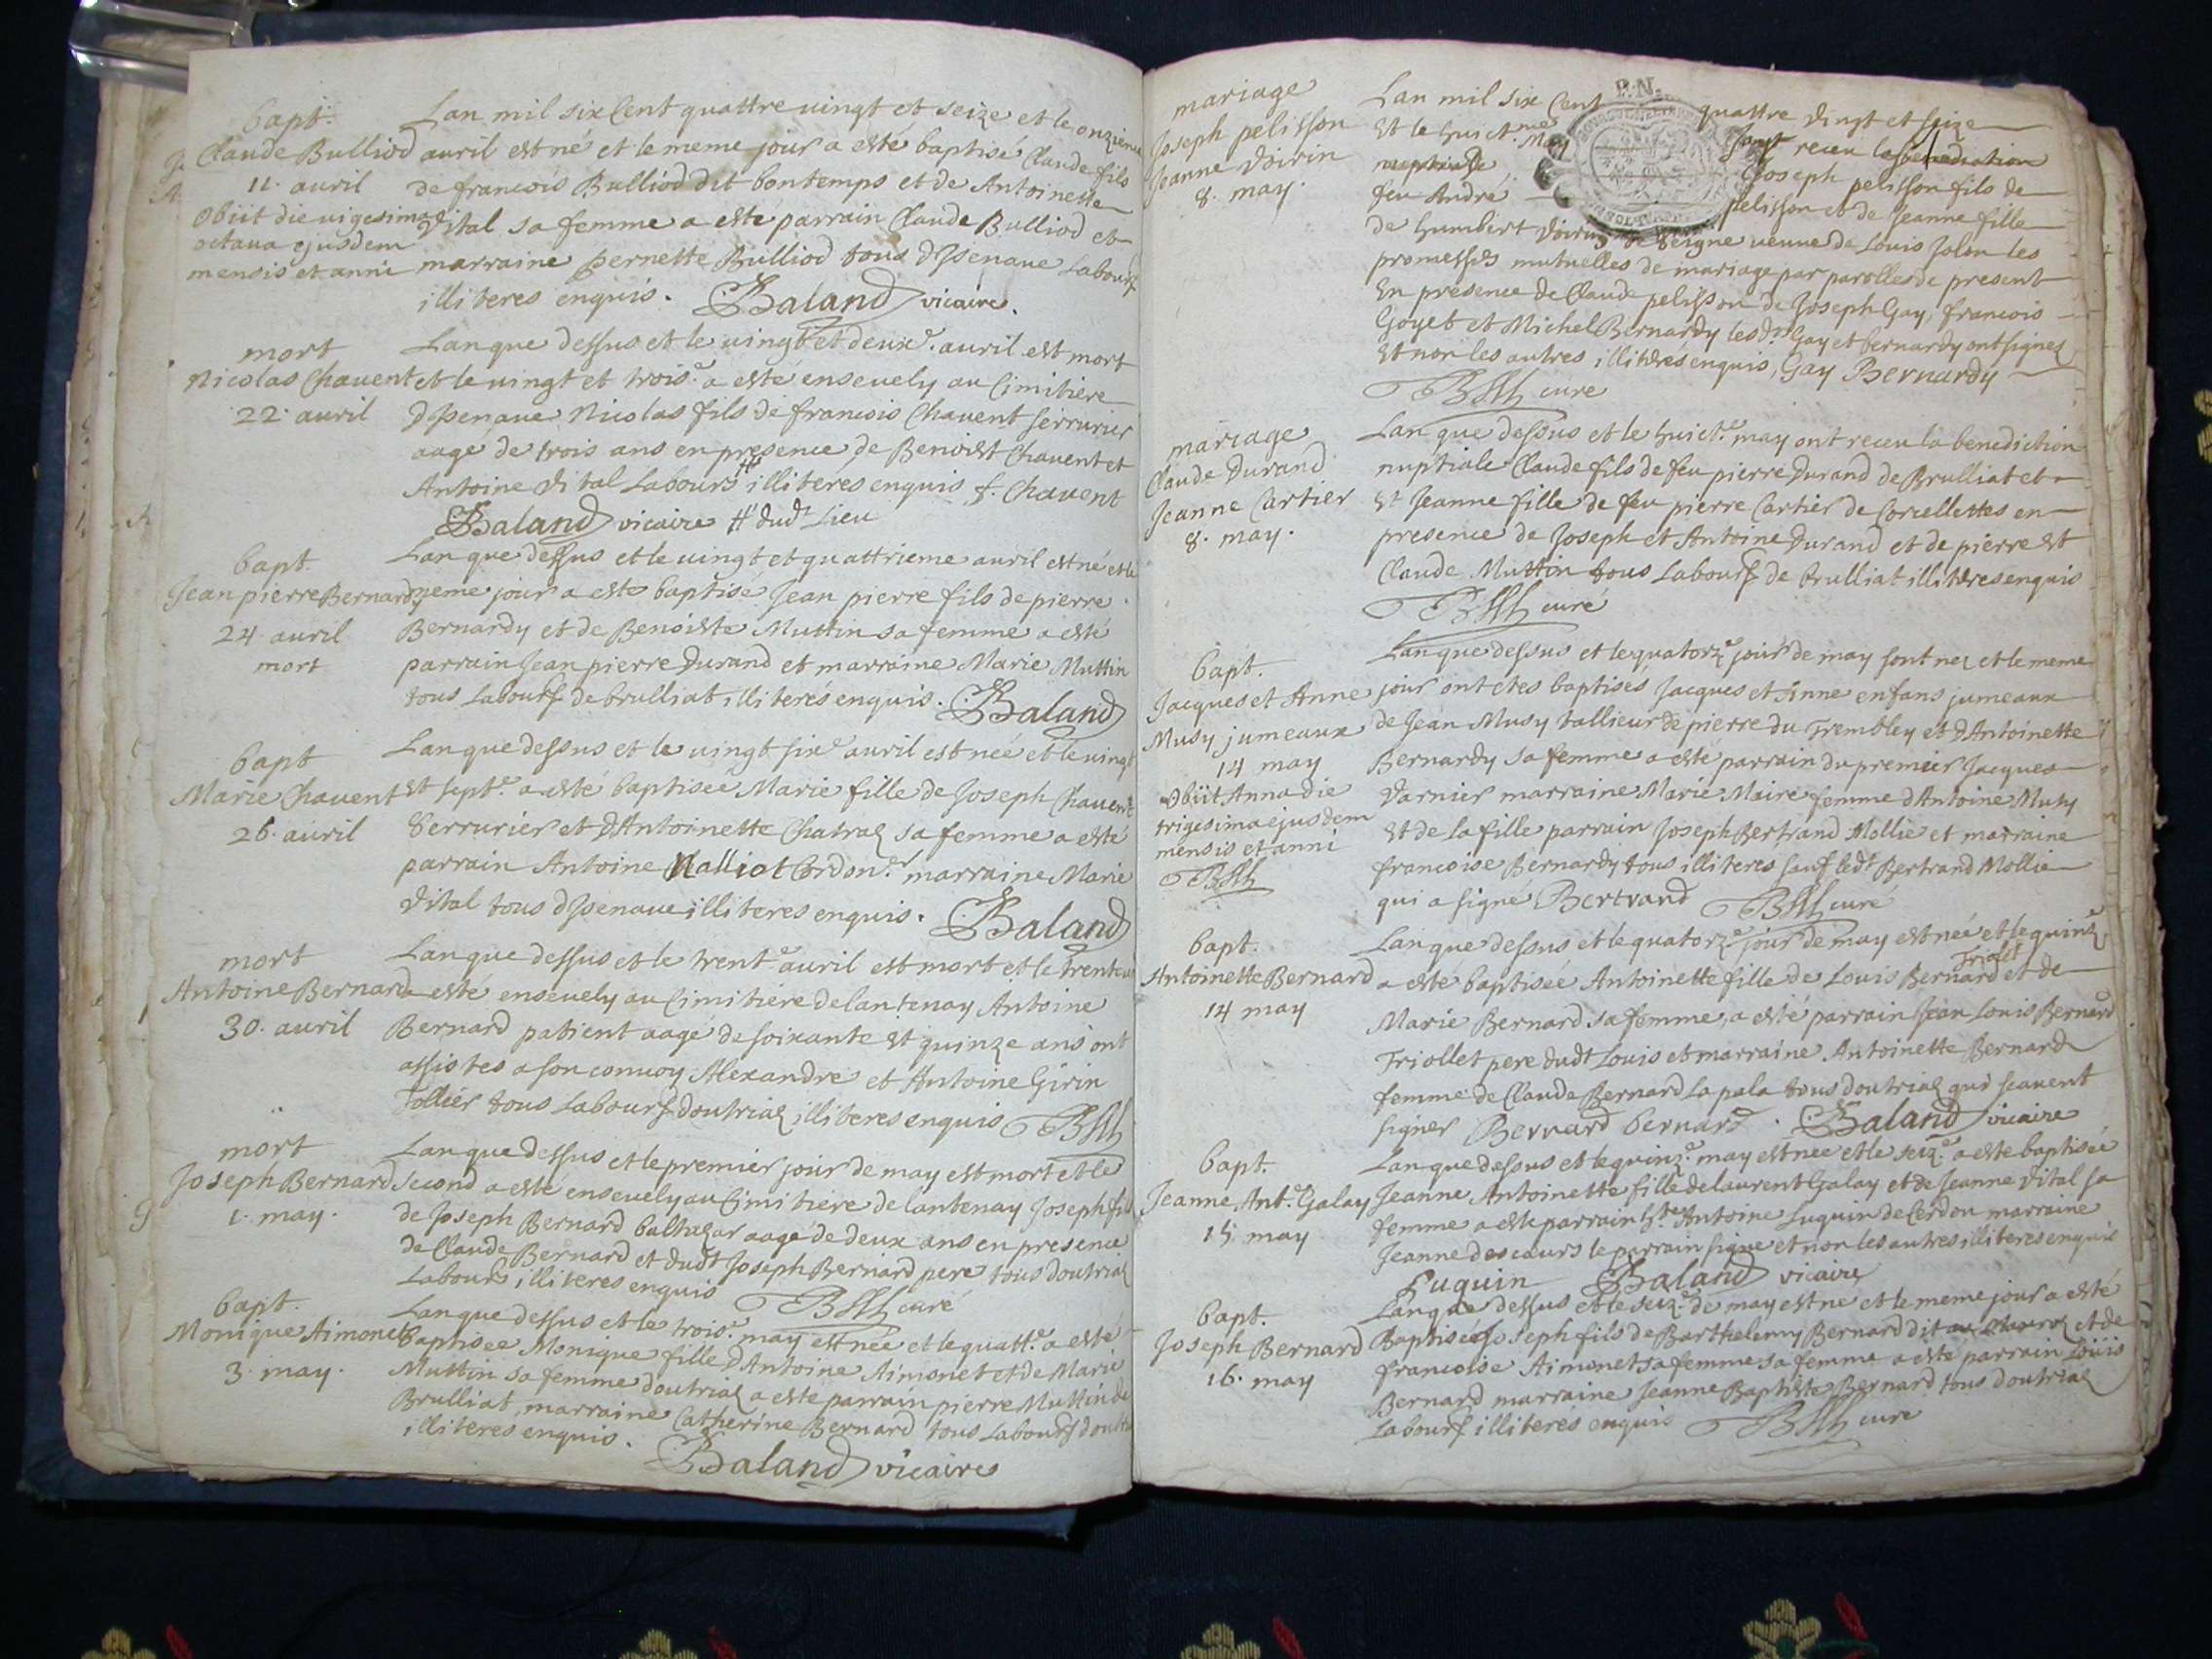 bapt.
Claude Bulliod
11. auril
Obiit die uigesima
octaua ejusdem
mensis et anni
Lan mil six Cent quattre uingt et seize et le onzieme
auril est né et le meme jour a esté baptisé Claude fils
de francois Bulliod dit bontemps et de Antoinette
Vital sa femme a esté parrain Claude Bulliod et
marraine pernette Bulliod tous dIzenaue Labours
illiteres enquis. Baland vicaire.
mort
Nicolas Chauent
22. auril
Lan que dessus et le uingt et deuxe. auril est mort
et le uingt et troise. a esté enseuely au Cimitiere
dIzenaue Nicolas fils de francois Chauent serrurier
aage de trois ans en presence de Benoist Chauent et
Antoine Vital Labours # illiteres enquis f. Chauent
Baland vicaire # dudt Lieu
bapt.
Jean pierre Bernardy
24. auril
mort
Lan que dessus et le uingt et quattrieme auril est né et le
meme jour a esté baptisé Jean pierre fils de pierre
Bernardy et de Benoiste Muttin sa femme a esté
parrain Jean pierre Durand et marraine Marie Muttin
tous Labours de brulliat illiterés enquis. Baland
bapt
Marie Chauent
26. auril
Lan que dessus et le uingt sixe auril est née et le uingt
et septe. a esté baptiseé Marie fille de Joseph Chauent
Serrurier et dAntoinette Chatraz sa femme a esté
parrain Antoine Nalliot Cordonr. marraine Marie
Vital tous dIzenaue illiteres enquis. Baland
mort
Antoine Bernard
30. auril
Lan que dessus et le trente auril est mort et le trente un
a esté enseuely au Cimitiere de lantenay Antoine
Bernard patient aagé de soixante et quinze ans ont
assistes a son conuoy Alexandre et Antoine Girin
Tollier tous Labours doutriaz illiteres enquis BSth
mort
Joseph Bernard
1. may.
Lan que dessus et le premier jour de may est mort et le
second a esté enseuely au Cimitiere de lantenay Joseph fils
de Joseph Bernard baltazar aagé de deux ans en presence
de Claude Bernard et dudt Joseph Bernard pere tous doutriaz
Labours illiteres enquis curé
bapt.
Monique Aimonet
3. may.
Lan que dessus et le troise. may est née et le quatte. a esté
baptiseé Monique fille dAntoine Aimonet et de Marie
Muttin sa femme doutriaz a esté parrain pierre Muttin de
Brulliat, marraine Catherine Bernard tous Labours doutriaz
illiteres enquis.
Baland vicaire
mariage
Joseph pelisson
Jeanne Voirin
8. may.
P.N.
Lan mil six Cent quattre vingt et seize
Et le huictme May sont receu la benediction
nuptiale Joseph pelisson fils de
feu André pelisson et de Jeanne fille
de humbert Voirin de Seigne ueuue de Louis Jolon les
promesses mutuelles de mariage par parolles de present
En presence de Claude pelisson de Joseph Gay, francois
Goyet et Michel Bernardy lesdt Gay et bernardy ont signez
Et non les autres illiterés enquis, Gay Bernardy
cure
mariage
Claude Durand
Jeanne Cartier
8. may.
Lan que dessus et le huicte. may ont receu la benediction
nuptiale Claude fils de feu pierre Durand de Brulliat et
Et Jeanne fille de feu pierre Cartier de Corcellettes en
presence de Joseph et Antoine Durand et de pierre Et
Claude Muttin tous Labours de brulliat illiteres enquis
curé
bapt.
Jacques et Anne
Musy jumeaux
14 may
Obiit Anna die
trigesima ejusdem
mensis et anni
Lan que dessus et le quatorze jour de may sont nez et le meme
jour ont etes baptisés Jacques et Anne enfans jumeaux
de Jean Musy tallieur de pierre du Trembley et dAntoinette
Bernardy sa femme a esté parrain du premier Jacques
Varnier marraine Marie Maire femme dAntoine Musy
Et de la fille parrain Joseph Bertrand Mollie et marraine
francoise Bernardy tous illiteres sauf ledt Bertrand Mollie
qui a signé Bertrand curé
bapt.
Antoinette Bernard
14 may
Lan que dessus et le quatorze jour de may est née et le quinze
Triolet
a esté baptiseé Antoinette fille de Louis Bernard et de
Marie Bernard sa femme, a esté parrain Jean Louis Bernard
Triollet pere dudt Louis et marraine Antoinette Bernard
femme de Claude Bernard la pala tous doutriaz qui scauent
signer Bernard bernard. Baland vicaire
bapt.
Jeanne Ante. Galay
15. may
Lan que dessus et le quinze. may est née et le seize. a esté baptiseé
Jeanne Antoinette fille de laurent Galay et de Jeanne Vital sa
femme a esté parrain Antoine Luquin de Cerdon marraine
Jeanne des cours le parrain signe et non les autres illiteres enquis
Luquin Baland vicaire
bapt.
Joseph Bernard
16. may
Lan que dessus et le seize. de may est ne et le meme jour a esté
Baptiseé Joseph fils de Barthelemy Bernard dit et de
francoise Aimonet sa femme sa femme a esté parrain Loüis
Bernard marraine Jeanne Baptiste Bernard tous doutriaz
Labours illiterés enquis cure